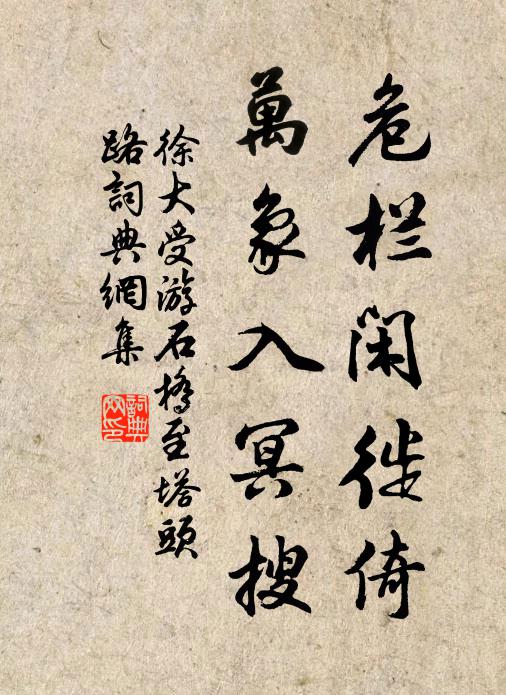 危栏闲徙倚
萬象入冥搜
徐大受游石橋至塔頭
路詞典網集
詞典
网印